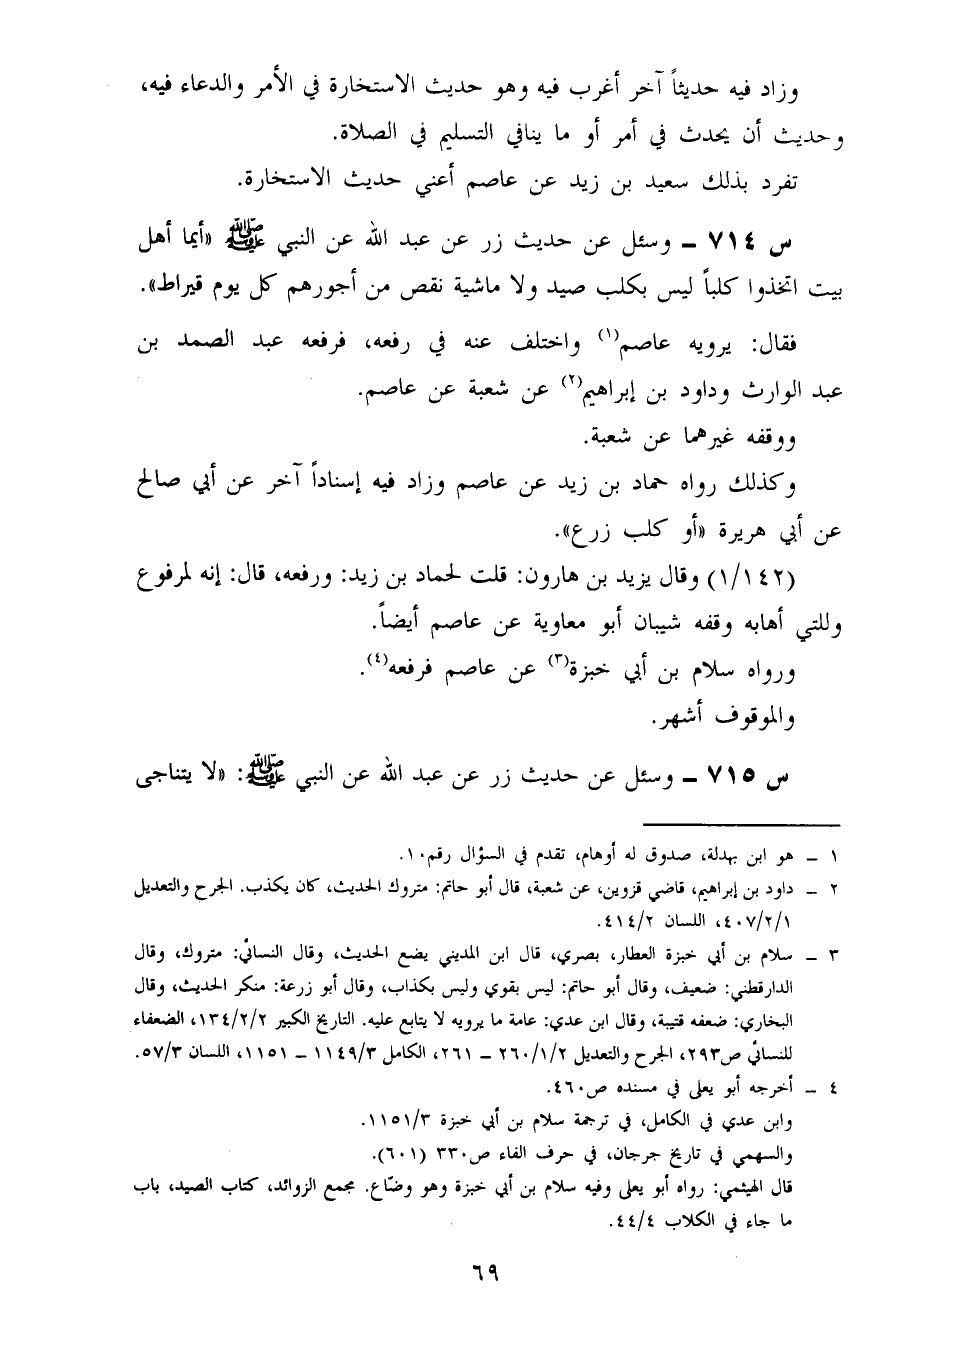 وزاد فيه حديثاً آخر أغرب فيه وهو حديث الاستخارة في الأمر والدعاء فيه،
وحديث أن يحدث في أمر أو ما ينافي التسليم في الصلاة.
تفرد بذلك سعيد بن زيد عن عاصم أعني حديث الاستخارة.
س ٧١٤ ـ وسئل عن حديث زر عن عبد الله عن النبي ﷺ «أيما أهل
بيت اتخذوا كلباً ليس بكلب صيد ولا ماشية نقص من أجورهم كل يوم قيراط».
فقال: يرويه عاصم(١) واختلف عنه في رفعه، فرفعه عبد الصمد بن
عبد الوارث وداود بن إبراهيم(٢) عن شعبة عن عاصم.
ووقفه غيرهما عن شعبة.
وكذلك رواه حماد بن زيد عن عاصم وزاد فيه إسناداً آخر عن أبي صالح
عن أبي هريرة «أو كلب زرع».
(١/١٤٢) وقال يزيد بن هارون: قلت لحماد بن زيد: ورفعه، قال: إنه لمرفوع
وللتي أهابه وقفه شيبان أبو معاوية عن عاصم أيضاً.
ورواه سلام بن أبي خبزة(٣) عن عاصم فرفعه(٤).
والموقوف أشهر.
س ٧١٥ ـ وسئل عن حديث زر عن عبد الله عن النبي ﷺ: «لا يتناجى
١ ـ هو ابن بهدلة، صدوق له أوهام، تقدم في السؤال رقم١٠.
٢ ـ داود بن إبراهيم، قاضي قزوين، عن شعبة، قال أبو حاتم: متروك الحديث، كان يكذب. الجرح والتعديل
٤٠٧/٢/١، اللسان ٤١٤/٢.
٣ ـ سلام بن أبي خبزة العطار، بصري، قال ابن المديني يضع الحديث، وقال النسائي: متروك، وقال
الدارقطني: ضعيف، وقال أبو حاتم: ليس بقوي وليس بكذاب، وقال أبو زرعة: منكر الحديث، وقال
البخاري: ضعفه قتيبة، وقال ابن عدي: عامة ما يرويه لا يتابع عليه. التاريخ الكبير ١٣٤/٢/٢، الضعفاء
للنسائي ص٢٩٣، الجرح والتعديل ٢٦٠/١/٢ ـ ٢٦١، الكامل ١١٤٩/٣ ـ ١١٥١، اللسان ٥٧/٣.
٤ ـ أخرجه أبو يعلى في مسنده ص٤٦٠.
وابن عدي في الكامل، في ترجمة سلام بن أبي خبزة ١١٥١/٣.
والسهمي في تاريخ جرجان، في حرف الفاء ص٣٣٠ (٦٠١).
قال الهيثمي: رواه أبو يعلى وفيه سلام بن أبي خبزة وهو وضّاع. مجمع الزوائد، كتاب الصيد، باب
ما جاء في الكلاب ٤٤/٤.
٦٩